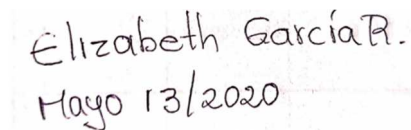 Elizabeth García R.
Mayo 13/2020